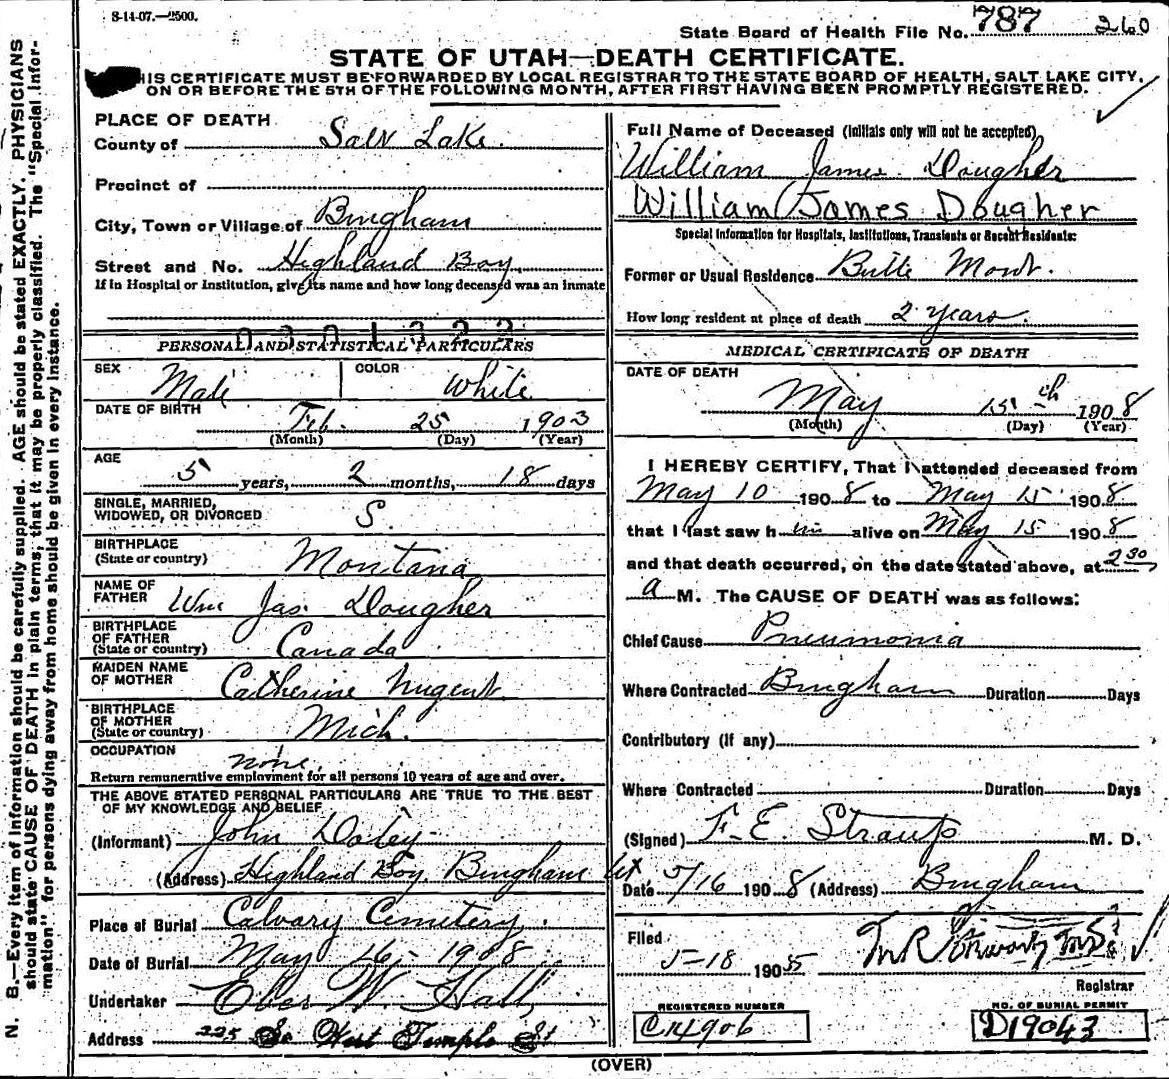 8-14-07.—2500.
State Board of Health File No. 787 260
STATE OF UTAH—DEATH CERTIFICATE.
HIS CERTIFICATE MUST BE FORWARDED BY LOCAL REGISTRAR TO THE STATE BOARD OF HEALTH, SALT LAKE CITY,
ON OR BEFORE THE 5TH OF THE FOLLOWING MONTH, AFTER FIRST HAVING BEEN PROMPTLY REGISTERED.
PLACE OF DEATH
County of Salt Lake.
Precinct of
City, Town or Village of Bingham
Street and No. Highland Boy.
If in Hospital or Institution, give its name and how long deceased was an inmate
PERSONAL AND STATISTICAL PARTICULARS
SEX Male COLOR White
DATE OF BIRTH Feb. 25 1903
(Month) (Day) (Year)
AGE
5 years, 2 months, 18 days
SINGLE, MARRIED,
WIDOWED, OR DIVORCED S.
BIRTHPLACE
(State or country) Montana
NAME OF
FATHER Wm Jas. Dougher
BIRTHPLACE
OF FATHER
(State or country) Canada
MAIDEN NAME
OF MOTHER Catherine Nugent
BIRTHPLACE
OF MOTHER
(State or country) Mich.
OCCUPATION none.
Return remunerative employment for all persons 10 years of age and over.
THE ABOVE STATED PERSONAL PARTICULARS ARE TRUE TO THE BEST
OF MY KNOWLEDGE AND BELIEF
(Informant) John
(Address) Highland Boy, Bingham Ut.
Place of Burial Calvary Cemetery.
Date of Burial May 16 - 1908
Undertaker Eber W. Hall,
Address 225 So West Temple St
Full Name of Deceased (Initials only will not be accepted)
William James Dougher
William James Dougher
Special Information for Hospitals, Institutions, Transients or Recent Residents:
Former or Usual Residence Butte Mont.
How long resident at place of death 2 years.
MEDICAL CERTIFICATE OF DEATH
DATE OF DEATH
May 15th 1908
(Month) (Day) (Year)
I HEREBY CERTIFY, That I attended deceased from
May 10 1908 to May 15 1908
that I last saw h im alive on May 15 1908
and that death occurred, on the date stated above, at 2 30
a M. The CAUSE OF DEATH was as follows:
Chief Cause Pneumonia
Where Contracted Bingham Duration Days
Contributory (if any)
Where Contracted Duration Days
(Signed) F. E. Straup M. D.
Date 5/16 1908 (Address) Bingham
Filed
5-18 190
Registrar
REGISTERED NUMBER
NO. OF BURIAL PERMIT
D19043
(OVER)
N. B.—Every item of information should be carefully supplied. AGE should be stated EXACTLY. PHYSICIANS
should state CAUSE OF DEATH in plain terms, that it may be properly classified. The "Special Infor-
mation" for persons dying away from home should be given in every instance.